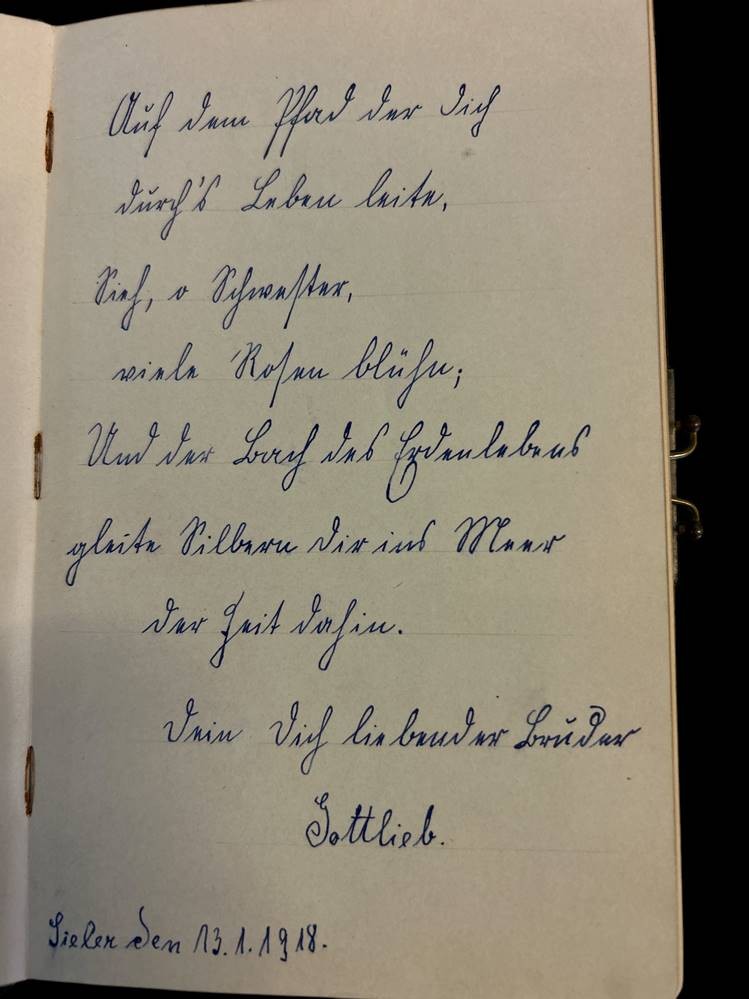 Auf dem Pfad der Dich
durch's Leben leite,
Sieh, o Schwester,
viele Rosen blühn;
Und der Bach des Erdenlebens
gleite Silbern Dir ins Meer
der Zeit dahin.
Dein Dich liebender Bruder
Gottlieb.
den 13.1.1918.